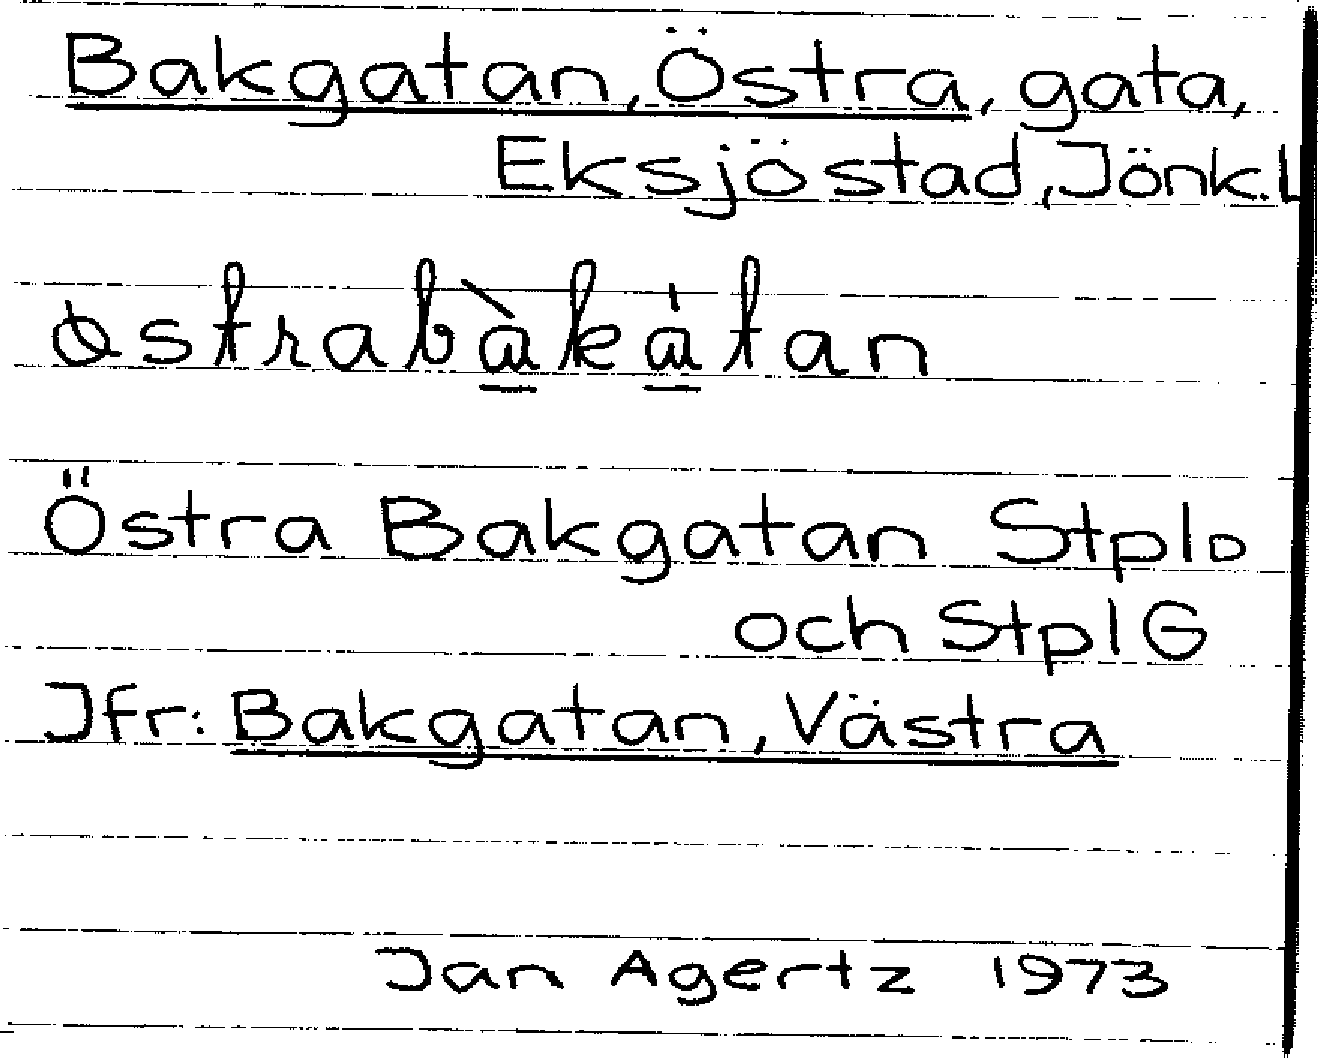 Bakgatan, Östra, gata,
Eksjöstad, Jönk.L
østrabàkátan
Östra Bakgatan StplD
och StplG
Jfr: Bakgatan, Västra
Jan Agertz 1973